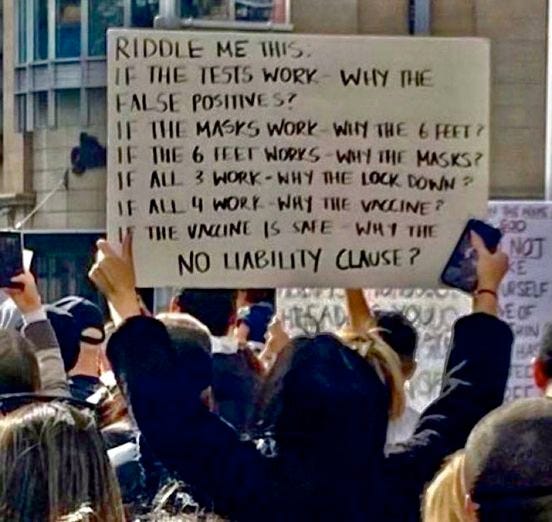 RIDDLE ME THIS:
IF THE TESTS WORK - WHY THE
FALSE POSITIVES?
IF THE MASKS WORK - WHY THE 6 FEET?
IF THE 6 FEET WORKS - WHY THE MASKS?
IF ALL 3 WORK - WHY THE LOCK DOWN?
IF ALL 4 WORK - WHY THE VACCINE?
IF THE VACCINE IS SAFE - WHY THE
NO LIABILITY CLAUSE?
GOD
NOT